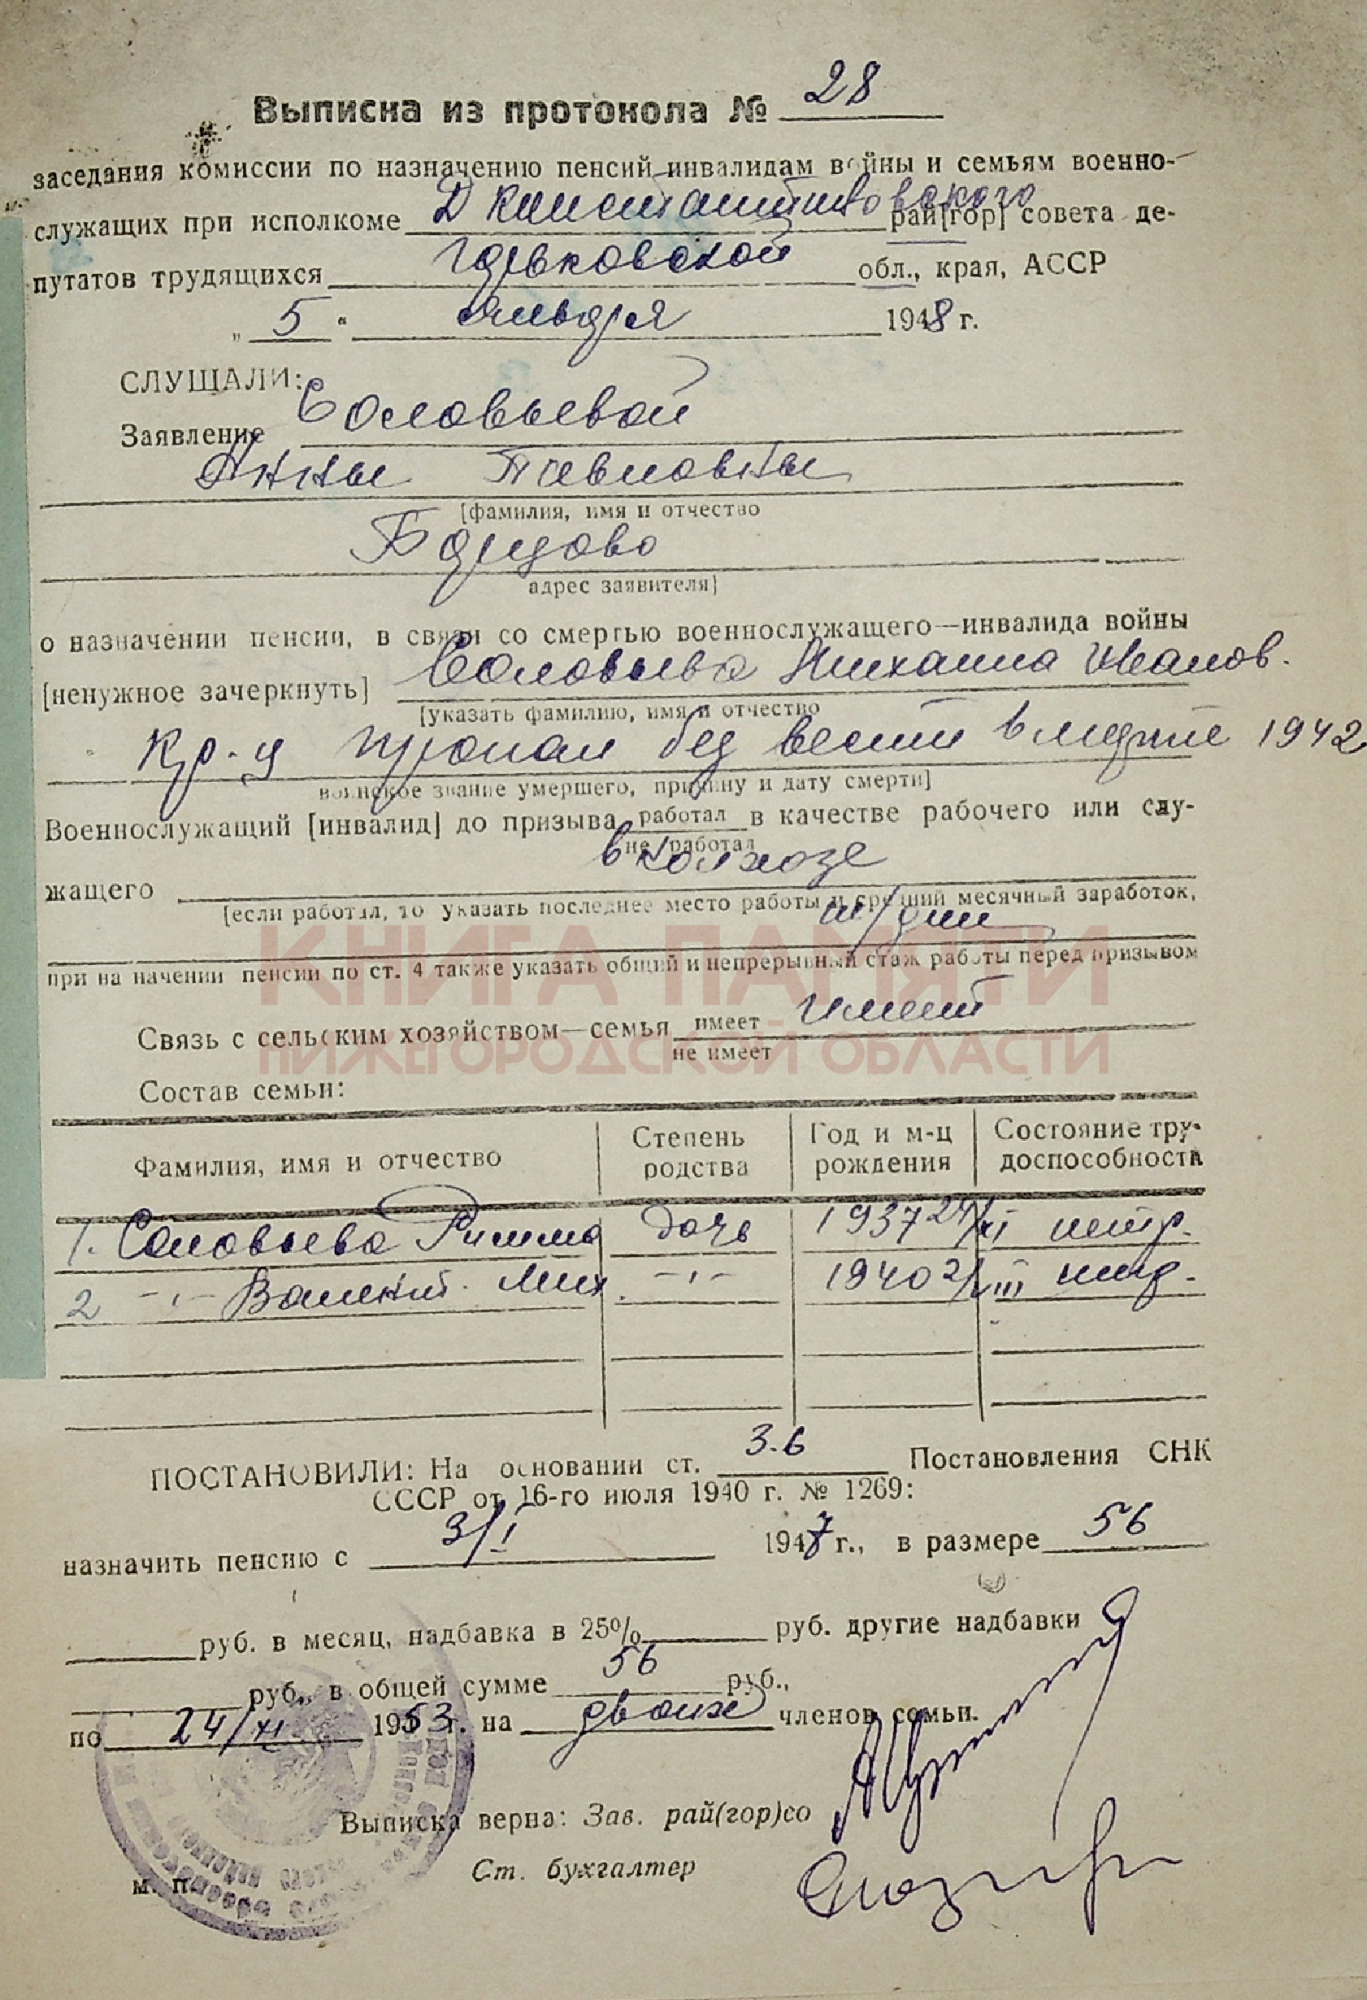 Выписка из протокола № 28
заседания комиссии по назначению пенсий инвалидам войны и семьям военно-
служащих при исполкоме Д Константиновского рай[гор] совета де-
путатов трудящихся Горьковской обл., края, АССР
„ 5 “ января 1948 г.
СЛУШАЛИ:
Заявление Соловьевой
Анны Павловны
[фамилия, имя и отчество
Борцово
адрес заявителя]
о назначении пенсии, в связи со смертью военнослужащего—инвалида войны
[ненужное зачеркнуть] Соловьева Михаила Иванов.
[указать фамилию, имя и отчество
Кр-ц пропал без вести в марте 1942
воинское звание умершего, причину и дату смерти]
Военнослужащий [инвалид] до призыва работал в качестве рабочего или слу-
не работал
жащего в колхозе
[если работал, то указать последнее место работы и средний месячный заработок,
тр/дни
при назначении пенсии по ст. 4 также указать общий и непрерывный стаж работы перед призывом
КНИГА ПАМЯТИ
Связь с сельским хозяйством—семья имеет имеет
не имеет
НИЖЕГОРОДСКОЙ ОБЛАСТИ
Состав семьи:
Фамилия, имя и отчество Степень родства Год и м-ц рождения Состояние трудоспособности
1. Соловьева Римма дочь 1937 24/XI нетр.
2 -"- Валент. Мих. -"- 1940 2/VIII нетр.
ПОСТАНОВИЛИ: На основании ст. 3.6 Постановления СНК
СССР от 16-го июля 1940 г. № 1269:
назначить пенсию с 3/I 1947 г., в размере 56
руб. в месяц, надбавка в 25% руб. другие надбавки
руб., в общей сумме 56 руб.,
по 24/XI 1953 г. на двоих членов семьи.
Выписка верна: Зав. рай(гор)со
Ст. бухгалтер
м. п.